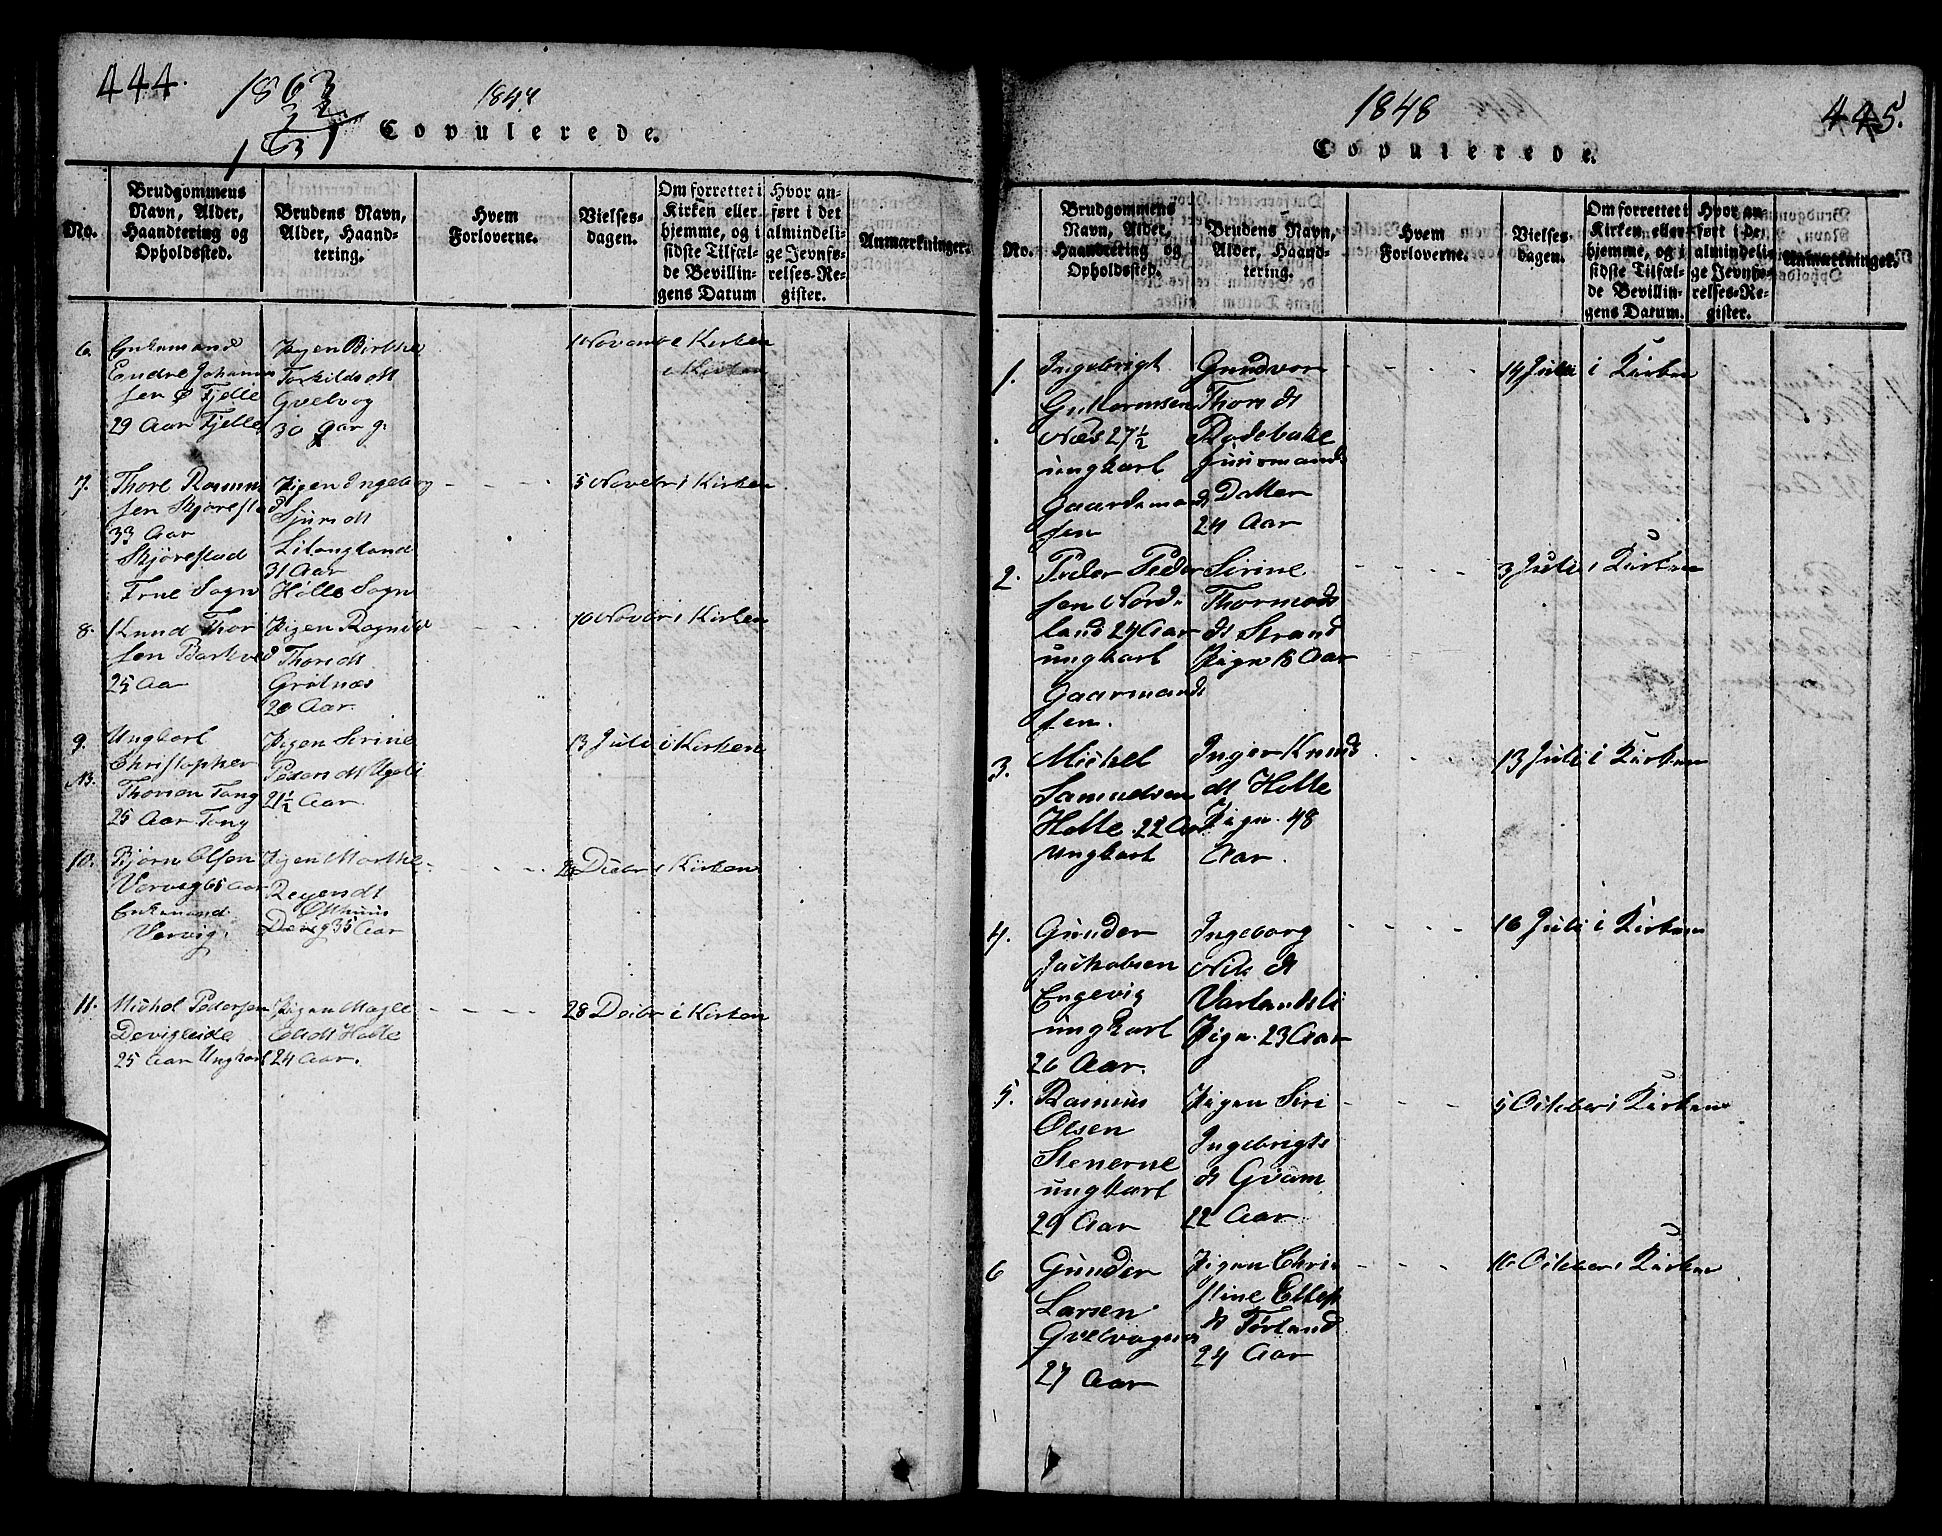 444.
1863
22
1847
1631
Copulerede.
No.
Brudgommens
Navn, Alder,
Haandtering og
Opholdssted.
Brudens Navn,
Alder, Haand-
tering.
Hvem
Forloverne.
Vielses-
dagen.
Om forrettet i
Kirken eller
hjemme, og i
sidste Tilfæl-
de Bevillin-
gens Datum
Hvor an-
ført i det
almindeli-
ge Jevnfø-
relses-Re-
gister.
Anmærkninger.
6.
Enkemand
Endre Johannes
sen Fjelle
29 Aar Fjelle
Pigen Birthe
Torkildsdt
Gvelvog
30 Aar
i Kirken
i Kirken
7.
Thore Rasmus
sen Skjørestad
33 Aar
Skjørestad
Frue Sogn
Pigen Ingeborg
Sjursdt
Lilangland
31 Aar
Holle Sogn
5 Novebr i Kirken
8.
Knud Thor
sen Barkved
25 Aa
Pigen Ragnild
Thorsdt
Grøtnæs
20 Aar.
10 Novbr i Kirken
9.
NB.
Ungkarl
Christopher
Thorsen Tang
25 Aar Tang
Pigen Sirine
Pedersdt
21½ Aar.
13 Juli i Kirken
10.
Bjørn Olsen
Vervig 65 Aar
Enkemand
Vervig.
Pigen Marthe
Osthuus
35 Aar
i Kirken
11.
Michel Pedersen
Deviglide
25 Aar Ungkarl
Pigen Magle
Holte
24 Aar.
28 Decbr i Kirken
1848
445.
Copulerede.
No.
Brudgommens
Navn, Alder,
Haandtering og
Opholdssted.
Brudens Navn,
Alder, Haand-
tering.
Hvem
Forloverne.
Vielses-
dagen.
Om forrettet i
Kirken eller
hjemme, og i
sidste Tilfæl-
de Bevillin-
gens Datum.
Hvor an-
ført i det
almindeli-
ge Jevnfø-
relses-Re-
gister.
Anmærkninger.
1.
Ingebrigt
Guttormsen
Næs 27½
ungkarl
Gaardmands
sen
Gundvor
Thorsdt
Rodebakke
Huusmands
Datter
24 Aar
14 Juli i Kirken
2.
Peder Peder
sen Nord-
land 24 Aar
ungkarl
Gaarmands
sen.
Sirine
Thormods
dt Strand
Pign 18 Aar
3 Juli i Kirken
3.
Michel
Samuelsen
Holte 22 Aar
Ungkarl
Inger Knuds
dt Holte
Pign. 48
Aar.
13 Juli i Kirken
4.
Gunder
Jackobsen
Engevig
ungkarl
26 Aar.
Ingeborg
Nils dt
Varlandsli
Pign. 23 Aar
16 Juli i Kirken
5.
Rasmus
Olsen
Stenerne
ungkarl
29 Aar
Pigen Siri
Ingebrigts
dt Gvam
22 Aar
5 October i Kirken
6
Gunder
Larsen
Gvelvogen
27 Aar
Pigen Chri
stine Ellefs
dt Førland
24 Aar
16 October i Kirken